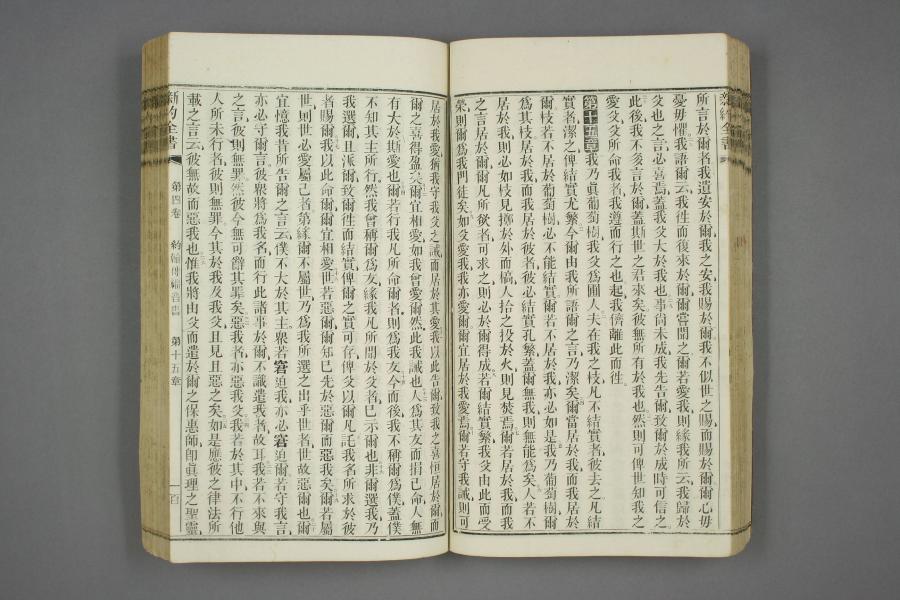 所言於爾者我遺安於爾我之安我賜於爾我不似世之賜而賜於爾爾心毋
憂毋懼我語爾云我徃而復來於爾爾嘗聞之爾若愛我則緣我所云我歸於
父也之言必喜焉蓋我父大於我也事尚未成我先吿爾致爾於成時可信之
此後我不多言於爾蓋斯世之君來矣彼無所有於我也然則可俾世知我之
愛父父所命我者我遵而行之也起我儕離此而徃
第十五章我乃眞葡萄樹我父爲圃人夫在我之枝凡不結實者彼去之凡結
實者潔之俾結實尤繁今爾由我所語爾之言乃潔矣爾當居於我而我居於
爾枝若不居於葡萄樹必不能結實爾若不居於我亦必如是我乃葡萄樹爾
爲其枝居於我而我居於彼者彼必結實孔繁蓋爾無我則無能爲矣人若不
居於我則必如枝見擲於外而槁人拾之投於火則見焚焉爾若居於我而我
之言居於爾爾凡所欲者可求之則必於爾得成若爾結實繁我父由此而受
榮則爾爲我門徒矣如父愛我我亦愛爾爾宜居於我愛焉爾若守我誡則可
居於我愛猶我守我父之誡而居於其愛我以此吿爾致我之喜恒居於爾而
爾之喜得盈矣爾宜相愛如我曾愛爾然此我誡也人爲其友而捐己命人無
有大於斯愛也爾若行我凡所命爾者則爲我友今而後我不稱爾爲僕蓋僕
不知其主所行然我曾稱爾爲友緣我凡所聞於父者已示爾也非爾選我乃
我選爾且派爾致爾徃而結實俾爾之實可存俾父以爾凡託我名所求於彼
者賜爾我以此命爾爾宜相愛世若惡爾爾知已先於惡爾而惡我矣爾若屬
世則世必愛屬己者第緣爾不屬世乃爲我所選之出乎世者世故惡爾也爾
宜憶我昔所吿爾之言云僕不大於其主衆若窘迫我亦必窘迫爾若守我言
亦必守爾言彼衆將爲我名而行此諸事於爾不識遣我者故耳我若不來與
之言彼則無罪然彼今無可辭其罪矣惡我者亦惡我父我若於其中不行他
人所未行者彼則無罪今其於我及我父且見且惡之矣如是應彼之律法所
載之言云彼無故而惡我也惟我將由父而遣於爾之保惠師卽眞理之聖靈
新約全書
第四卷
約翰傳福音書
第十五章
百